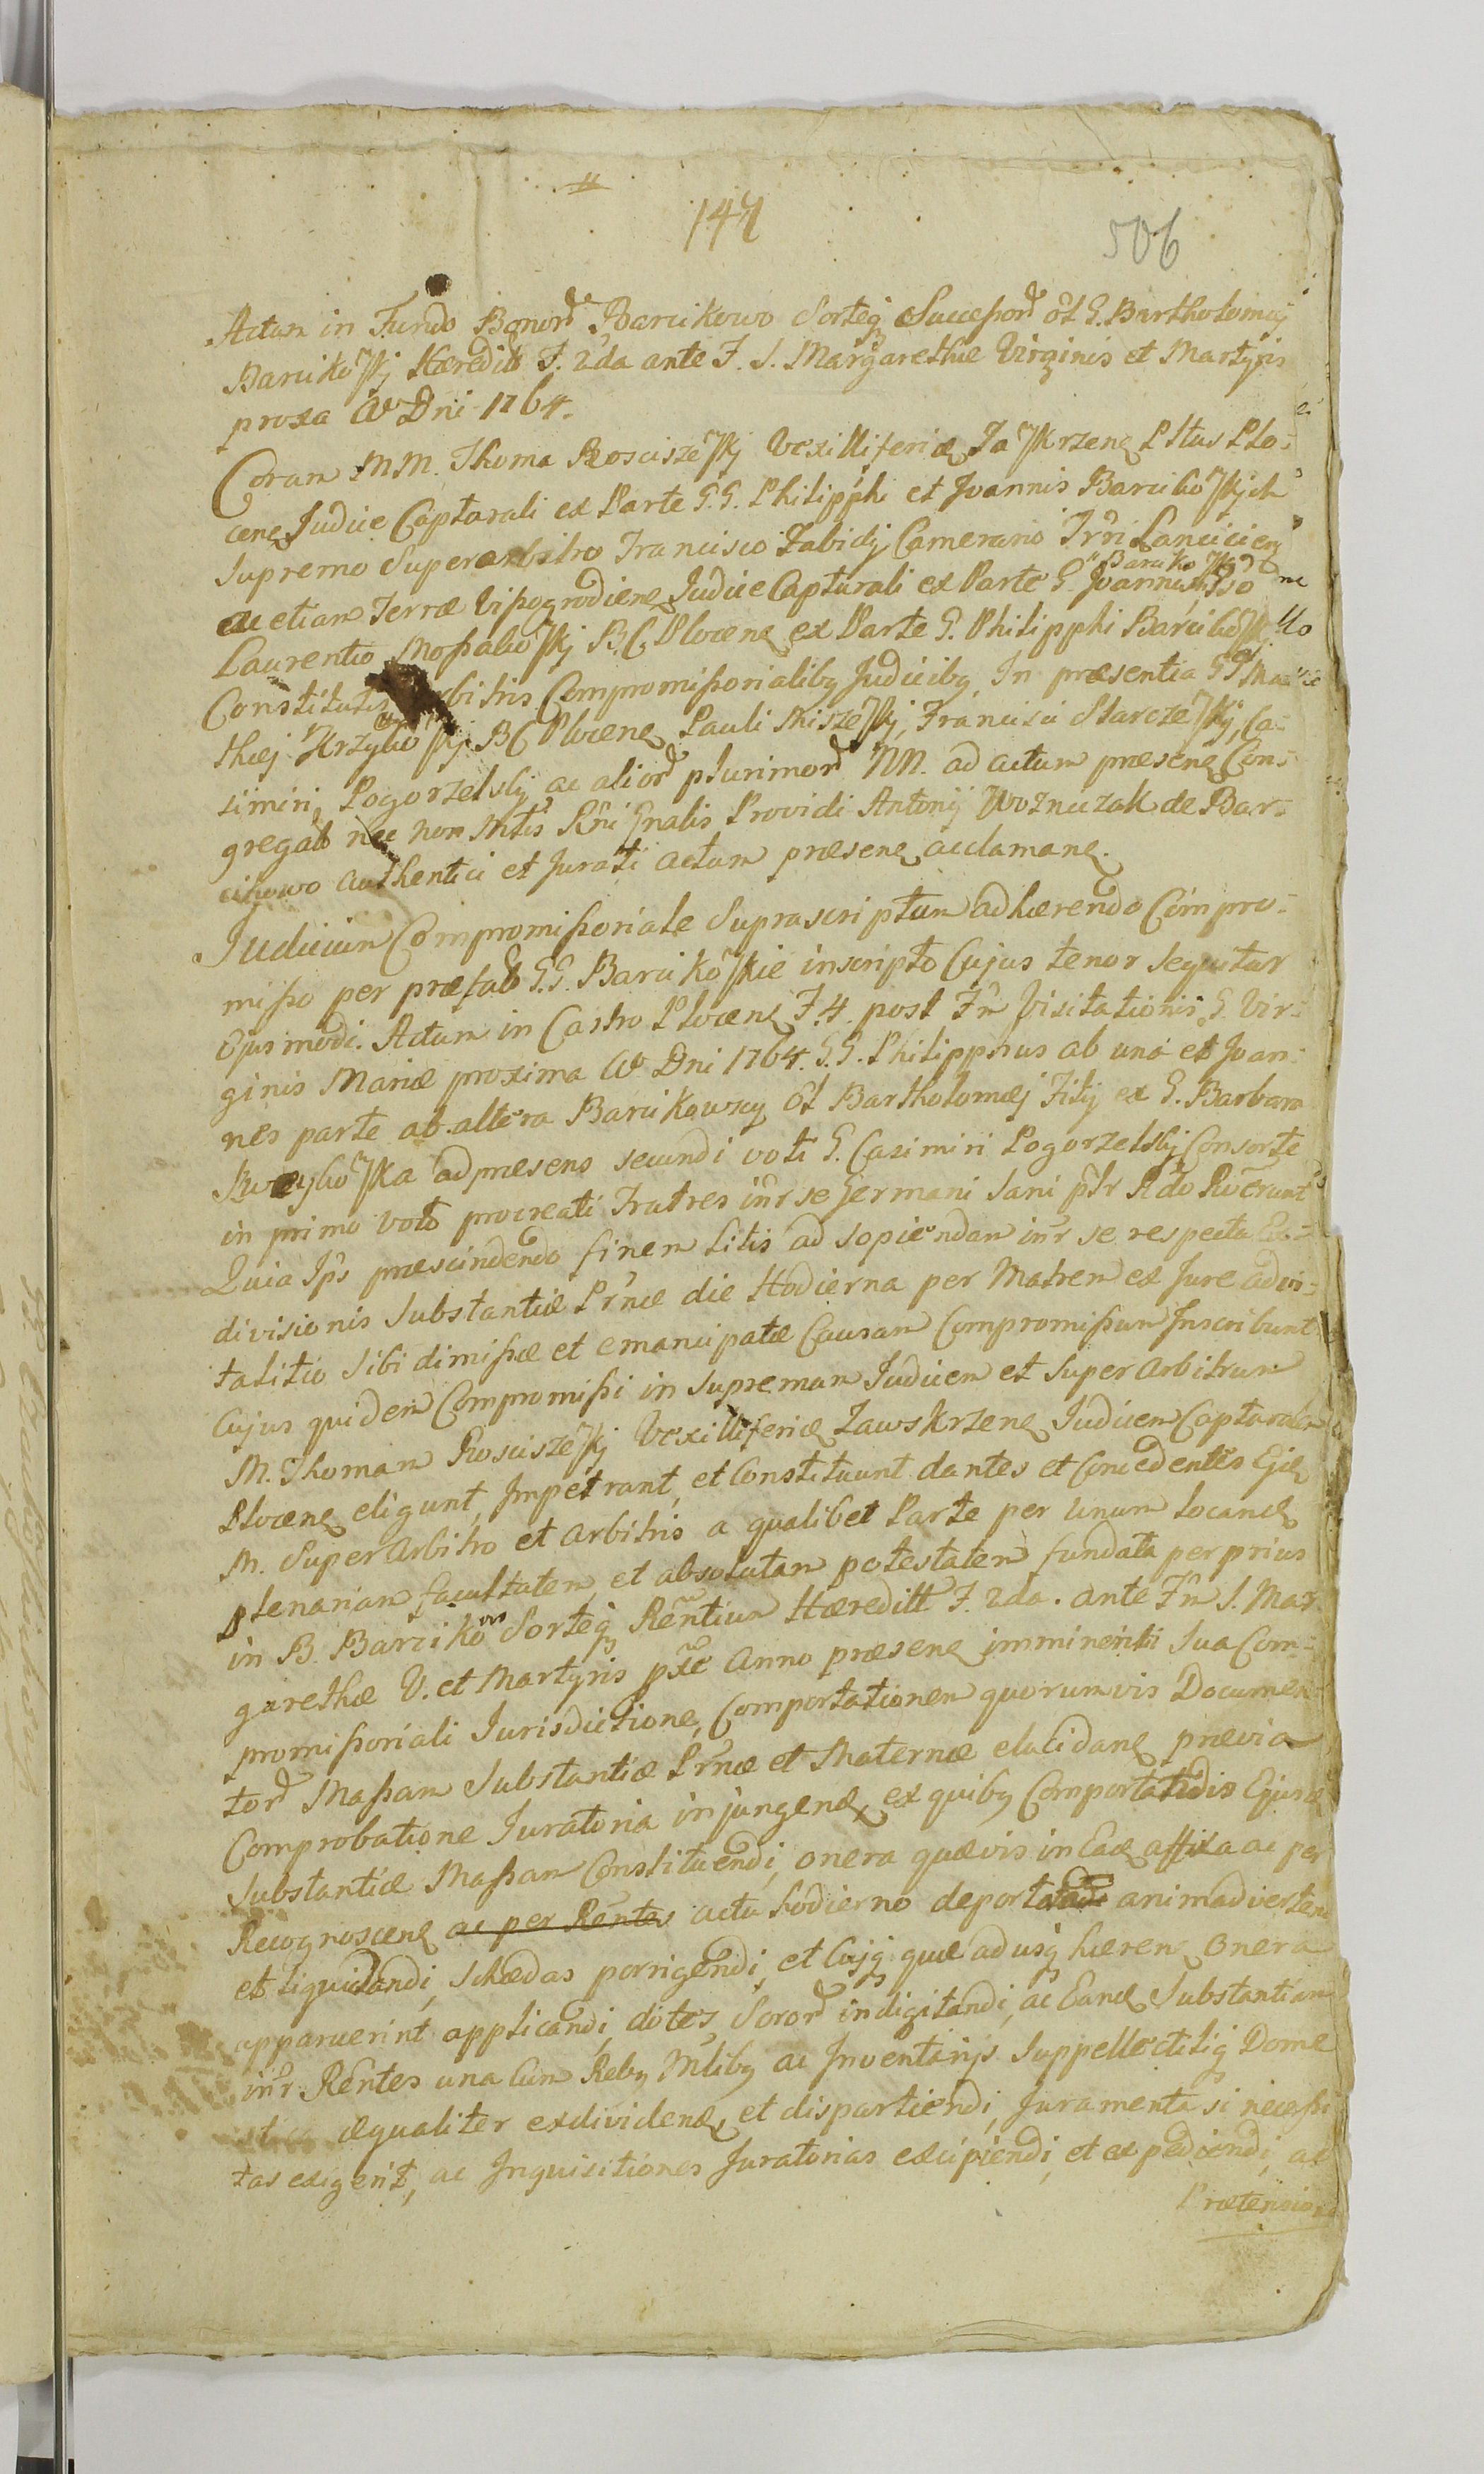 147
506
Actum in Fundo Bonor Barcikowo Sorteq Successor ol G. Bartholomæj
Barcikowskj Hæredit F. 2da ante F. S. Margarethæ Virginis et Martyris
proxa Ao Dni 1764.
Coram MM. Thoma Rosciszewskj Vexilliferiæ Zawskrzene Pltus Plo-
cene Judice Capturali ex Parte G.G. Philipphi et Joannis Barcikowskjch
Supremo Superarbitro Francisco Zabidij Camerario Trri Lancicien
ac etiam Terræ Vissogrodiene Judice Capturali ex Parte G. Joannis Barcikowskj
Laurentio Mossakowskj B.C. Plocene ex Parte G. Philipphi Barcikowskj
Constitutis Arbitris Compromissorialibq Judicibq, In præsentia GG Mat-
thiej Krzykowskj B C Plocene Pauli Miszewskj, Francisci Starczewskj, Ca-
simiri Pogorzelskj ac alior plurimor NN. ad actum præsene Con-
gregat nec non Mtis Rni Gnalis Providi Antonij Woznczak de Bar-
cikowo authentici et Jurati actum præsene acclamane.
Judicium Compromissoriale Suprascriptum adhærendo Compro-
misso per præfat G.G. Barcikowskie inscripto Cujus tenor sequitur
Ejusmodi. Actum in Castro Plocene F. 4. post Fm Visitationis G. Vir-
ginis Mariæ proxima Ao Dni 1764. G.G. Philipphus ab una et Joan-
nes parte ab altera Barcikowscy ol Bartholomæj Filij ex G. Barbara
ad præsens secundi voti G. Casimiri Pogorzelskj Consorte
in primo voto procreati Fratres inr se Germani Sani ptr Rdo Rwerunt
Quia Ips præscindendo finem litis ad sopiendam inr se respectu Ex-
divisionis Substantiæ Prnæ die Hodierna per Matrem ex Jure advi-
talitio Sibi dimissæ et emancipatæ Causam Compromissum Inscribunt
Cujus quidem Compromissi in Supremum Judicem et Super Arbitrum
M. Thomam Rosciszewskj Vexilliferiæ Zawskrzene Judicem Capturalem
Plocene eligunt, Impetrant, et Constituunt dantes et Concedentes Ejd
M. Super Arbitro et Arbitris a qualibet Parte per Unum locand
plenariam facultatem et absolutam potestatem fundata per prius
in B. Barcikowo Sorteq Rentium Hæreditt F. 2da. ante Fm S. Mar-
garethæ V. et Martyris pxæ Anno præsene imminenti Sua Com-
promissoriali Jurisdictione, Comportationem quorumvis Documen-
tor Massam Substantiæ Prnæ et Maternæ elucidane prævia
Comprobatione Juratoria injungend, ex quibq Comportatis Ejusd
Substantiæ Massam Constituendi, onera quævis in Ead affixa ac per
Recognoscene ac per Rentes actu hodierno deportatad animadvertend
et liquidandi, schedas porrigendi, et Cujq quæ adusq hæren onera
apparuerint applicandi, dotes Soror indigitandi, ac Eand Substantiam
inr Rentes una Cum Rebq Mlibq ac Inventarijs Suppellectiliq Dome
æqualiter exdividend, et dispartiendi, Juramenta si necessi
tas exigerit, ac Inquisitiones Juratorias excipiendi, et expediendi, ac
Prætensione